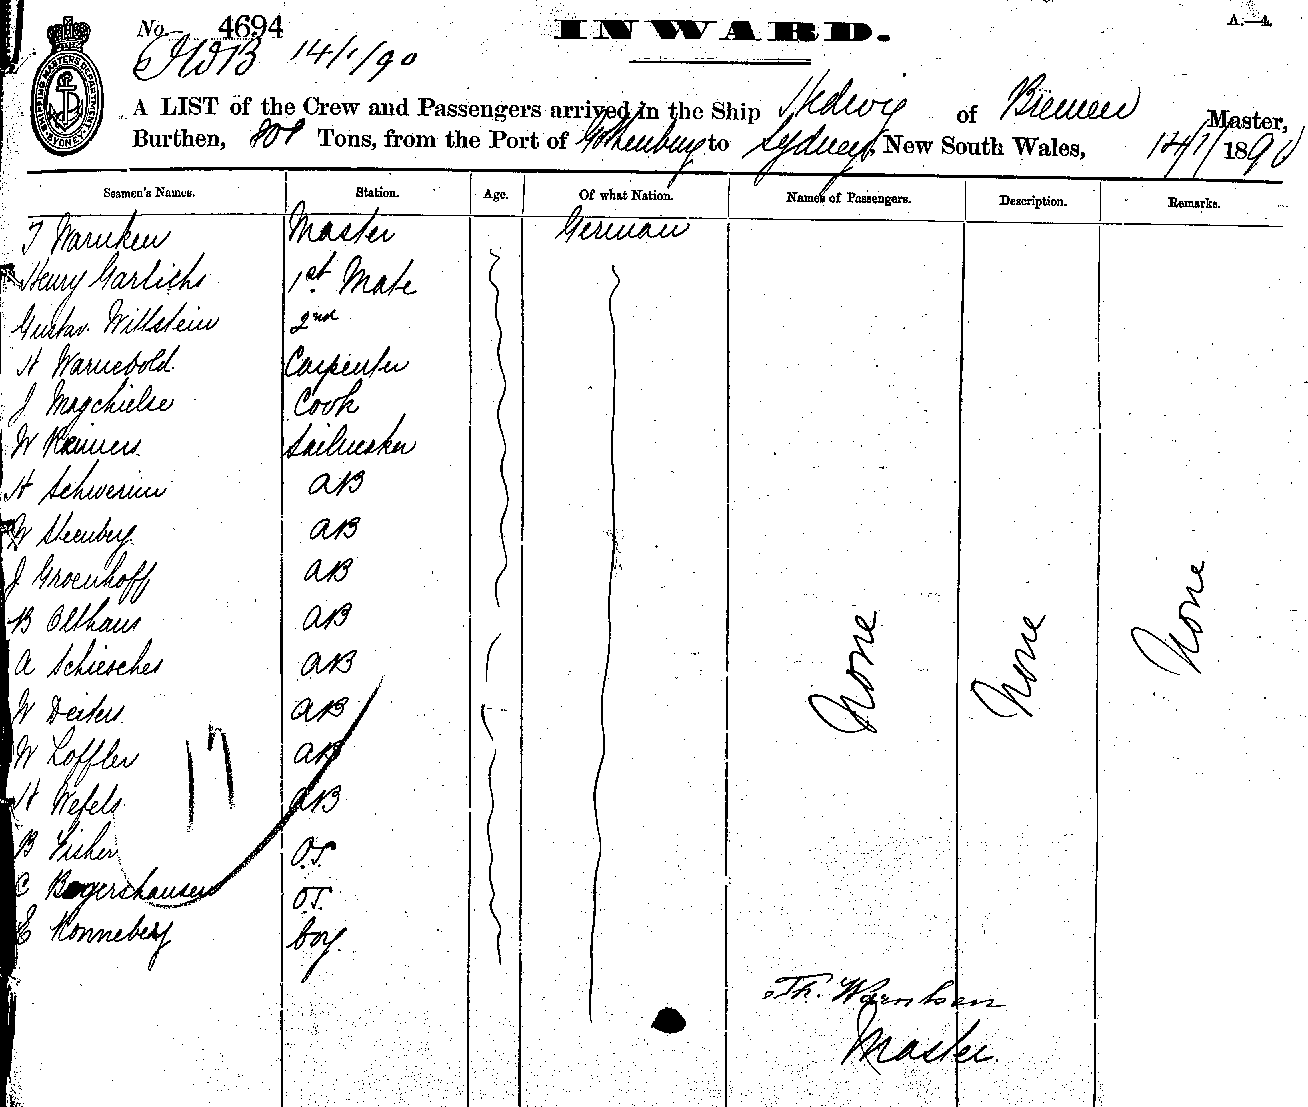 No. 4694
INWARD.
A.—4.
14/1/90
A LIST of the Crew and Passengers arrived in the Ship Hedwig of Bremen Master,
Burthen, 808 Tons, from the Port of Gothenburg to Sydney, New South Wales, 14/1/1890
Seamen's Names. Station. Age. Of what Nation. Names of Passengers. Description. Remarks.
T Warnken Master German
Henry Garlichs 1st Mate
Gustav. Wittstein 2nd
H Warnebold Carpenter
J Magchielse Cook
W Reimers Sailmaker
H Schwerin AB
W Steenberg AB
J Groenhoff AB
B Olthaus AB
A Schiesches AB
W Deiters AB
W Loffler AB
H Wefels AB
B Fisher O.S.
C Bogershausen O.S.
E Konneberg boy.
17
None None None
Th. Warnken
Master.